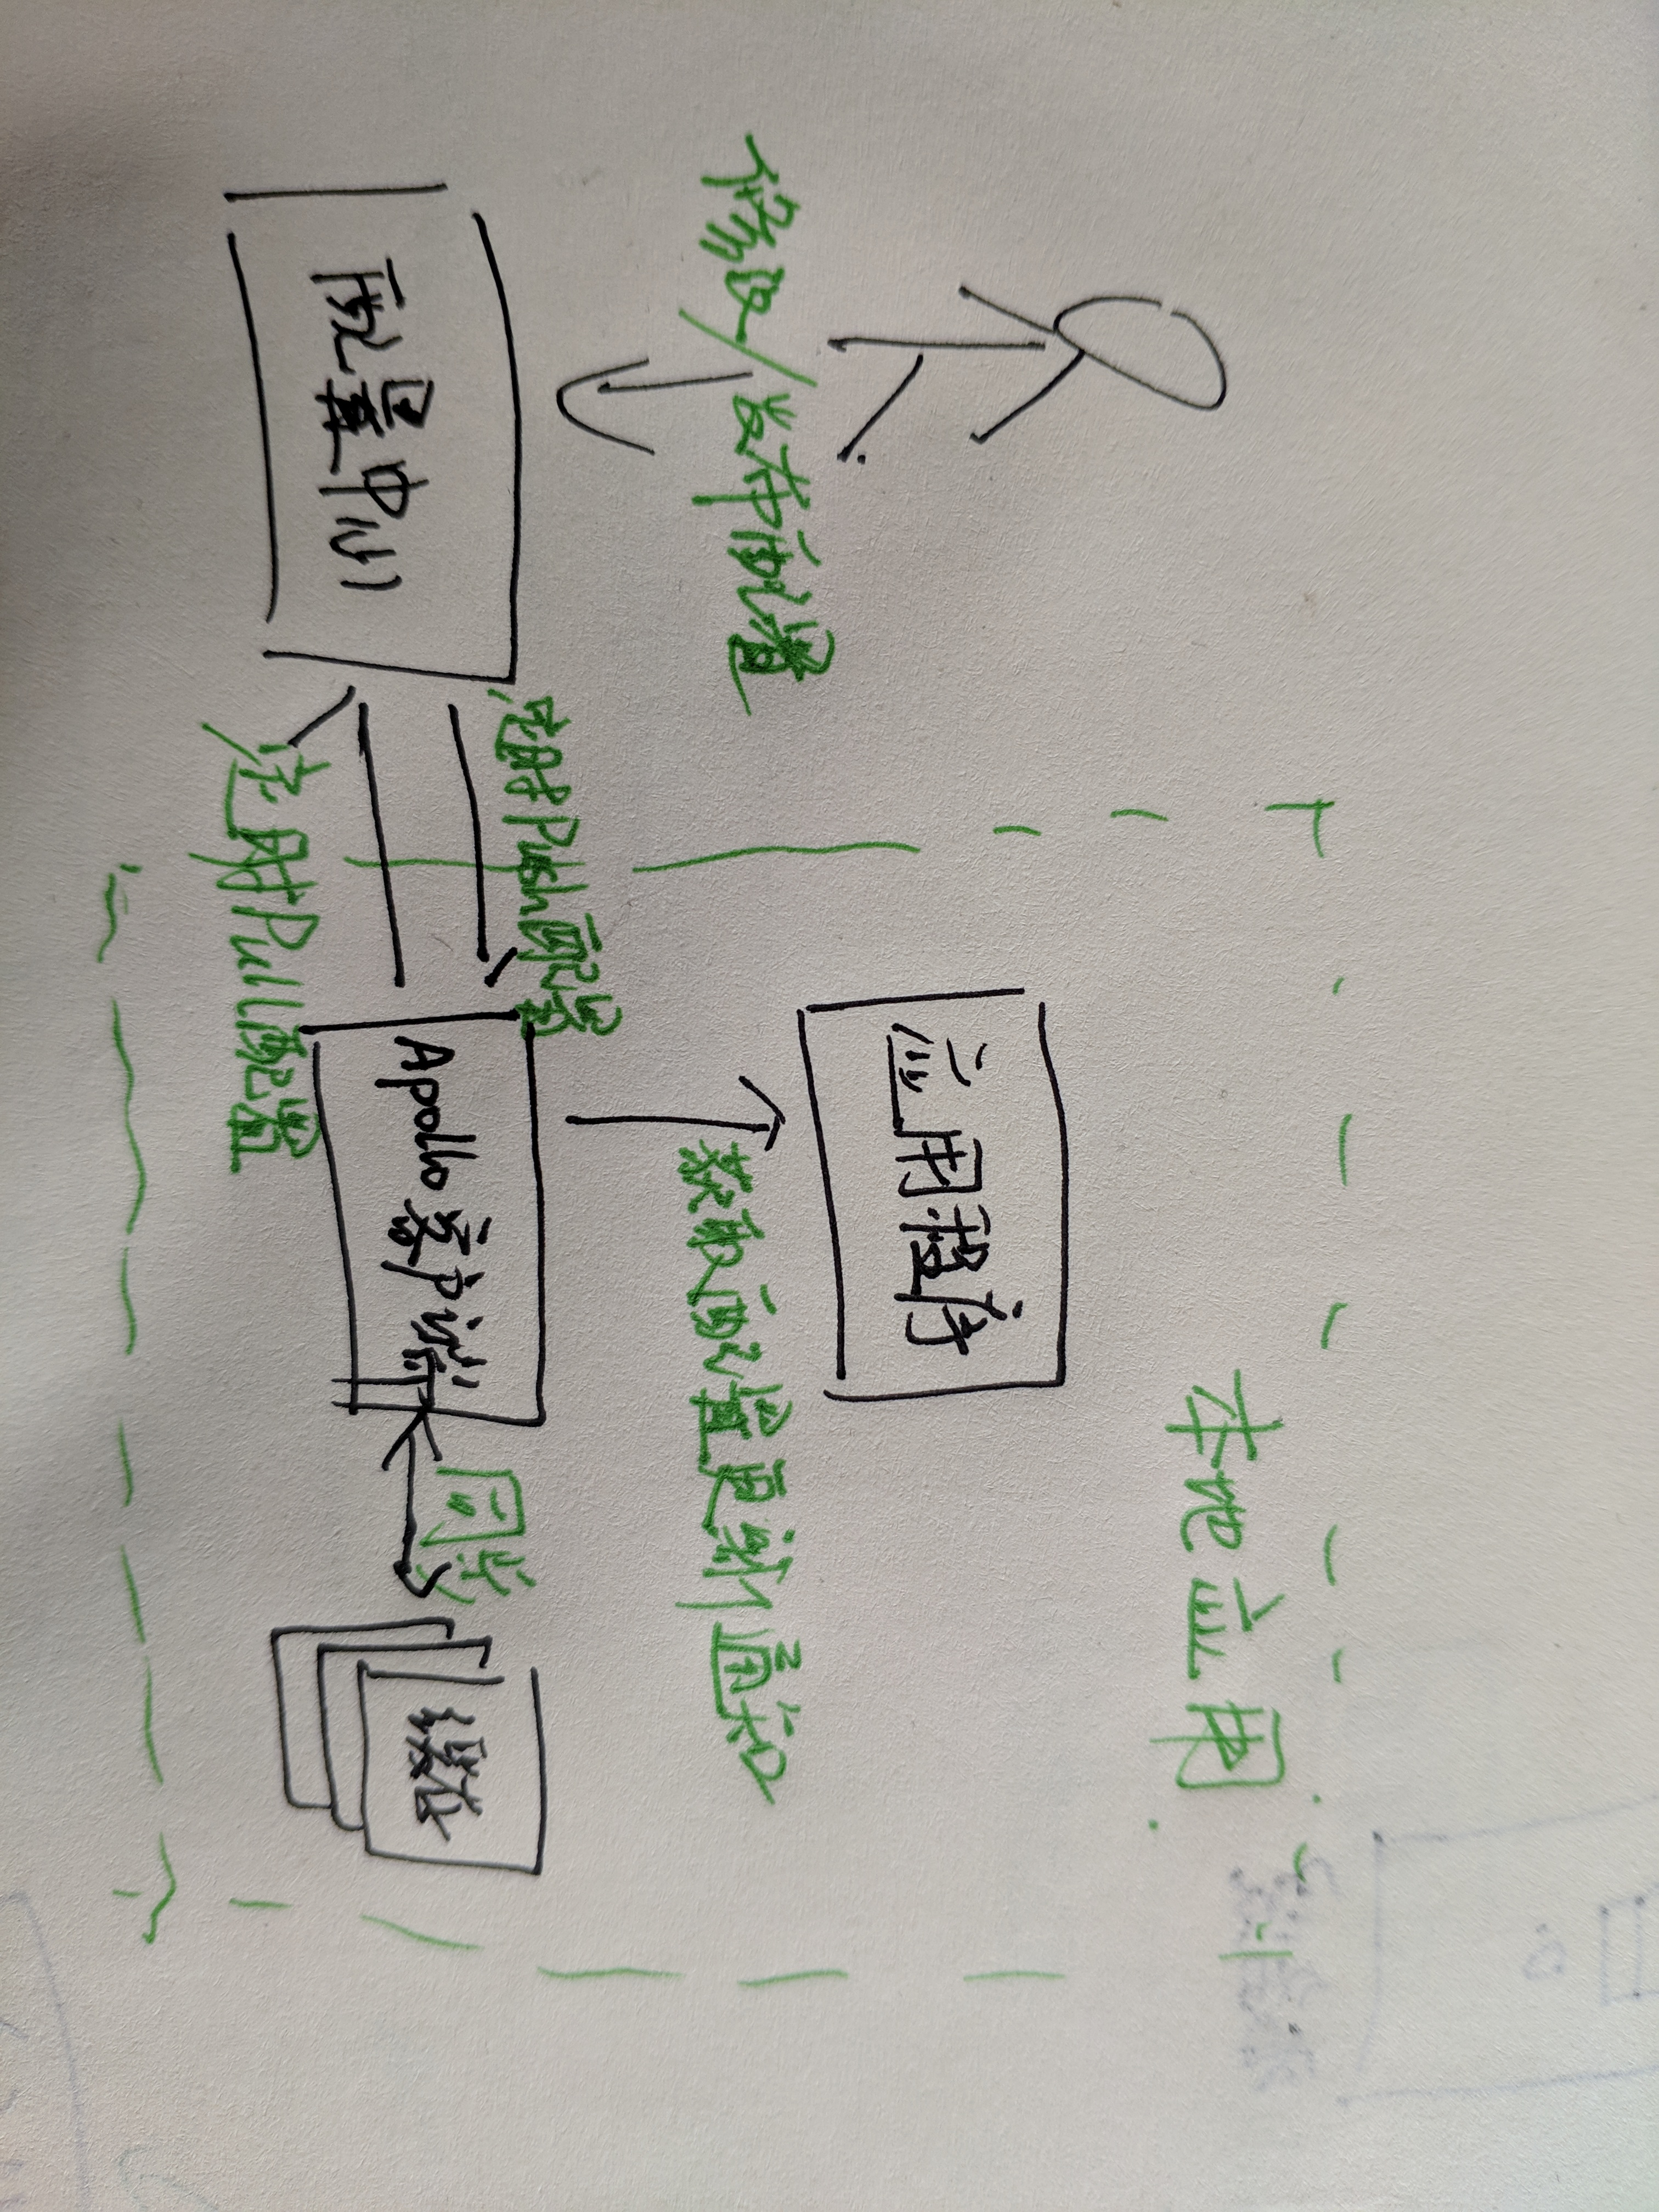 本地应用
应用程序
修改/发布配置
获取配置更新通知
Push配置
同步
配置中心
Apollo客户端
缓存
定时Pull配置